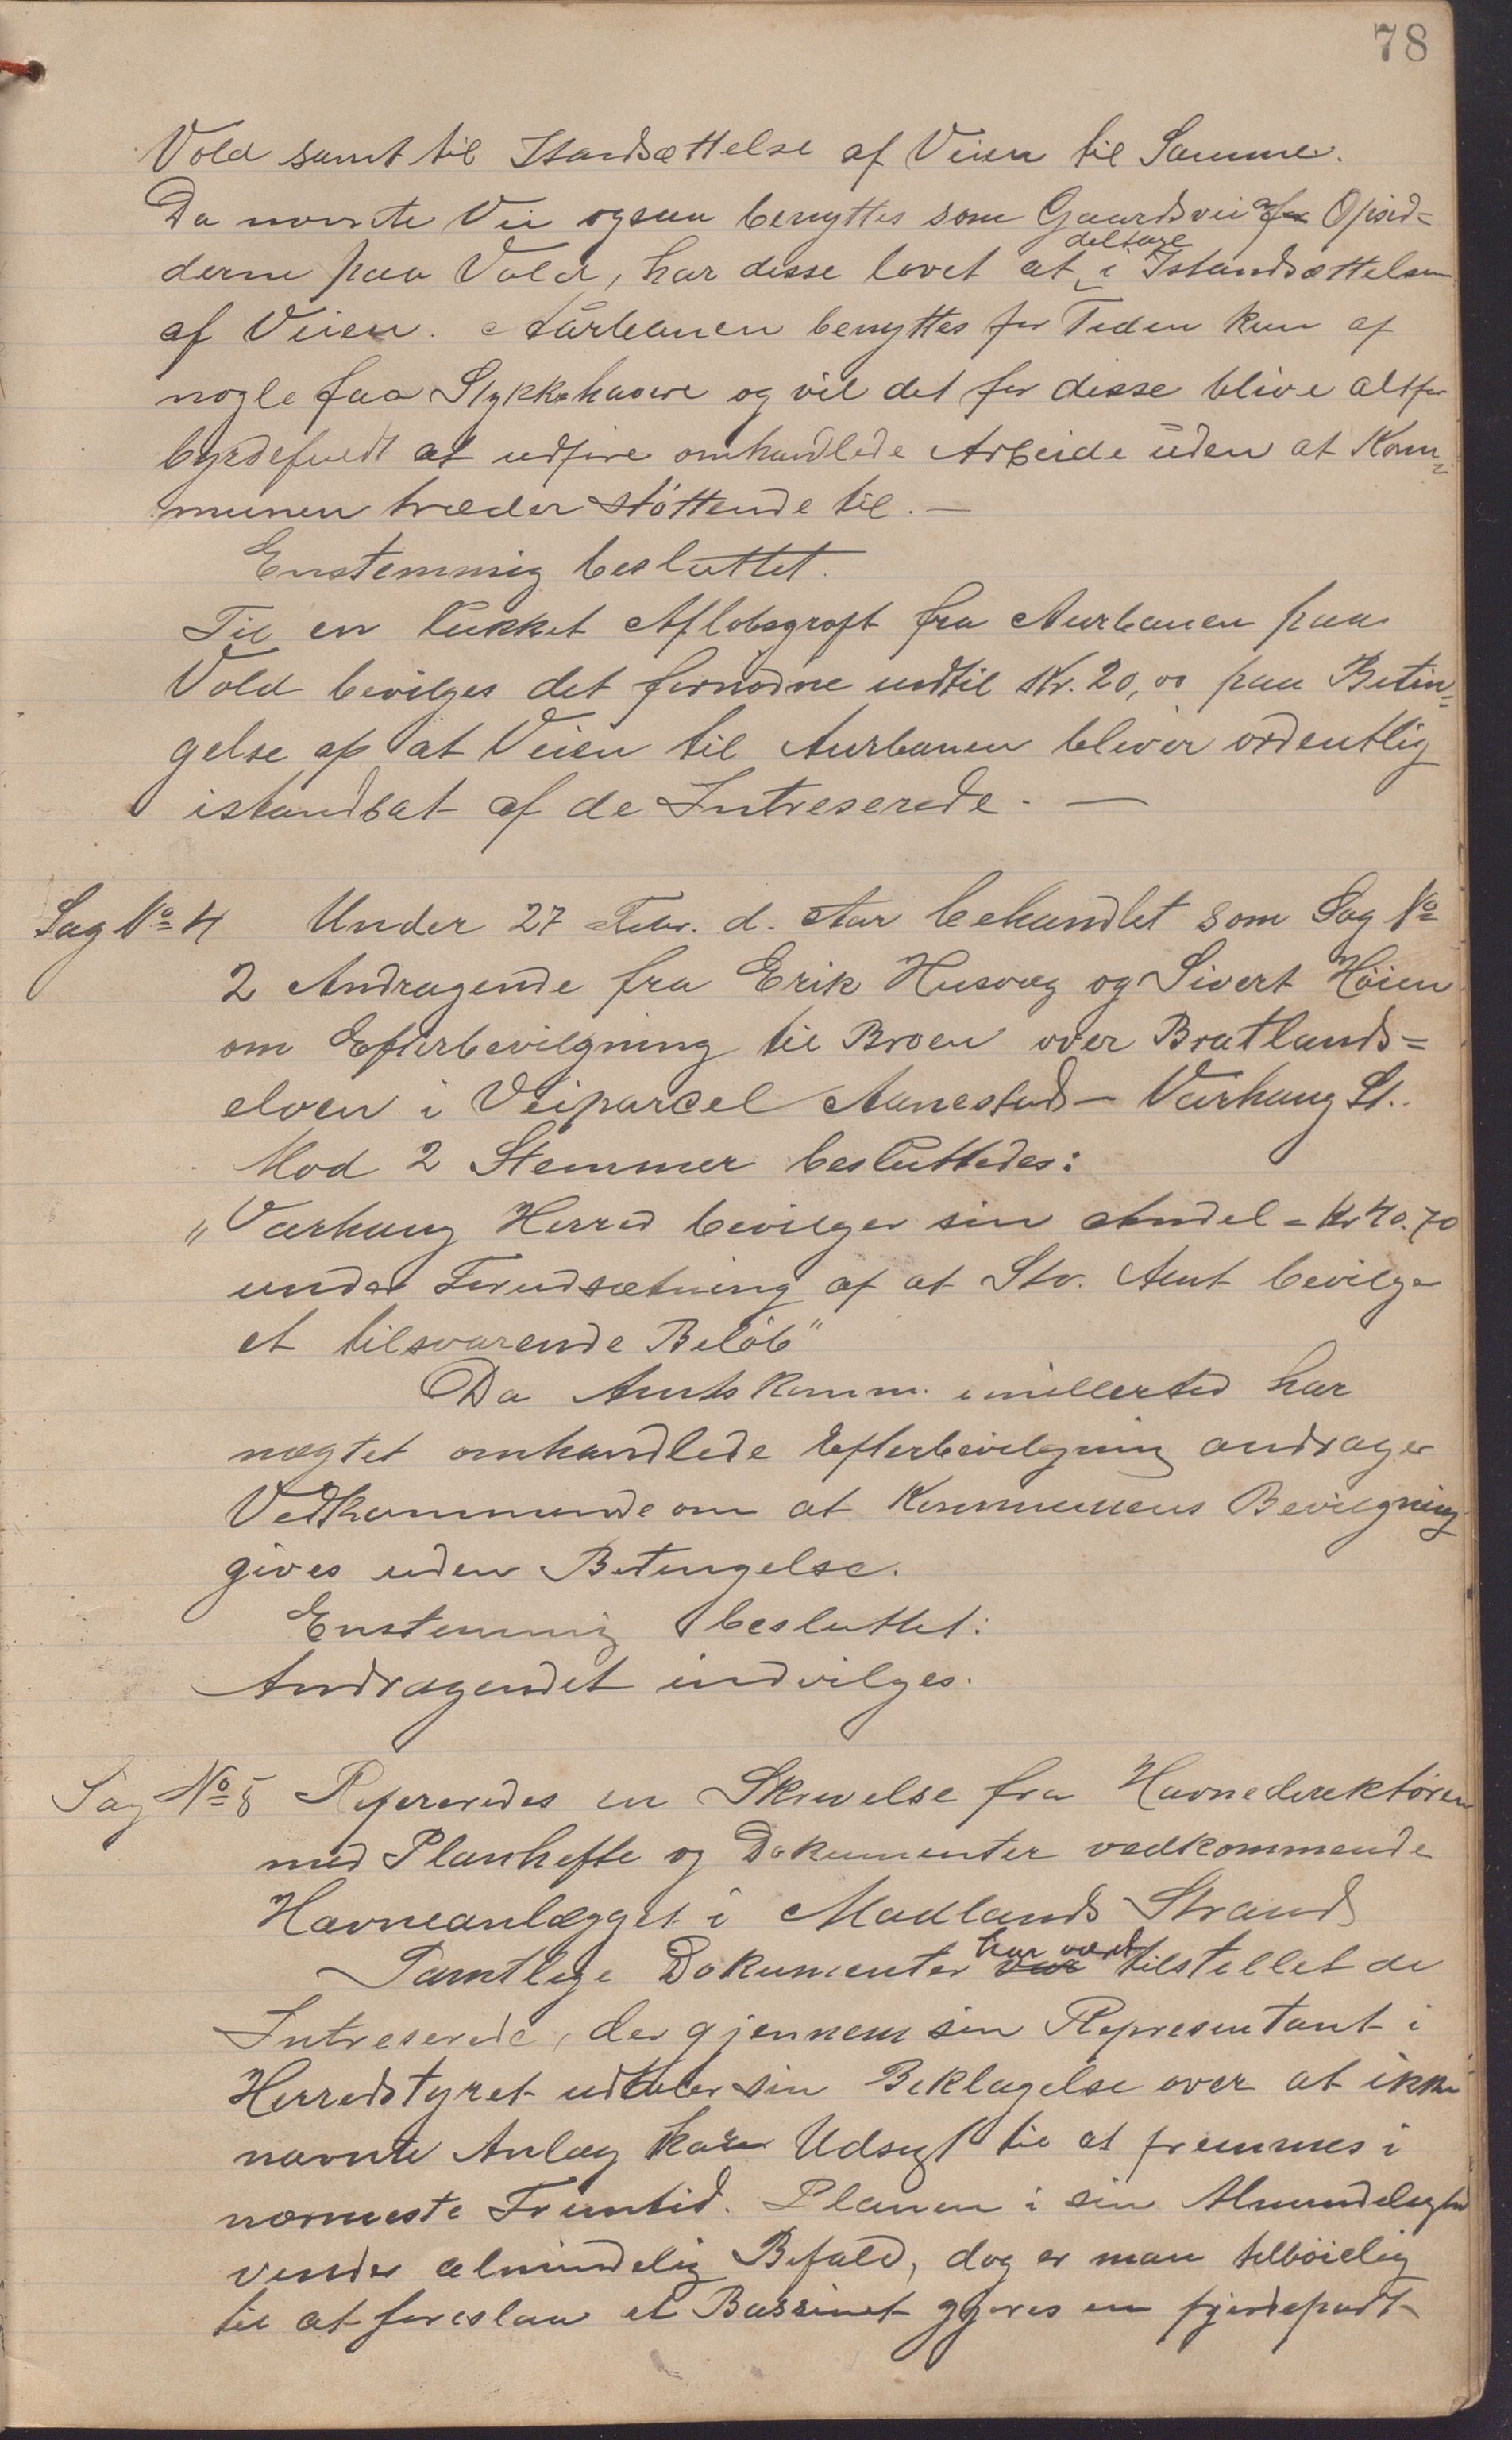 78
Vold samt til Istandsættelse af Veien til Samme.
Da nævnte Vei ogsaa benyttes som Gaardsvei for Opsid=
derne paa Vold, har disse lovet at deltage i Istandsættelsen
af Veien. Aurbanen benyttes for Tiden kun af
nogle faa Stykkehavere og vil det for disse blive altfor
byrdefuldt at udføre omhandlede Arbeide uden at Kom=
munen træder støttende til. —
Enstemmig besluttet.
Til en lukket Afløbsgrøft fra Aurbanen paa
Vold bevilges det fornødne indtil Kr. 20,00 paa Betin=
gelse af at Veien til Aurbanen bliver ordentlig
istandsat af de Intreserede. —
Sag No 4 Under 27 Febr. d. Aar behandlet som Sag No
2 Andragende fra Erik Husvæg og Sivert Høien
om Efterbevilgning til Broen over Bratlands=
elven i Veiparcel Aanestad – Varhaug St.
Mod 2 Stemmer besluttedes:
„Varhaug Herred bevilger sin Andel = Kr 40.70
under Forudsætning af at Stv. Amt bevilger
et tilsvarende Beløb"
Da Amtskomm. imillertid har
nægtet omhandlede Efterbevilgning andrager
Vedkommende om at Kommunens Bevilgning
gives uden Betingelse.
Enstemmig besluttet:
Andragendet indvilges.
Sag No 5 Refereredes en Skrivelse fra Havnedirektøren
med Planhefte og Dokumenter vedkommende
Havneanlægget i Madlands Strand
Samtlige Dokumenter har været tilstillet de
Intreserede, der gjennem sin Representant i
Herredstyret udtaler sin Beklagelse over at ikke
nævnte Anlæg har Udsigt til at fremmes i
nærmeste Fremtid. Planen i sin Almindelighed
vinder almindelig Bifald, dog er man tilbøielig
til at foreslaa at Bassinet gjøres en fjerdepart